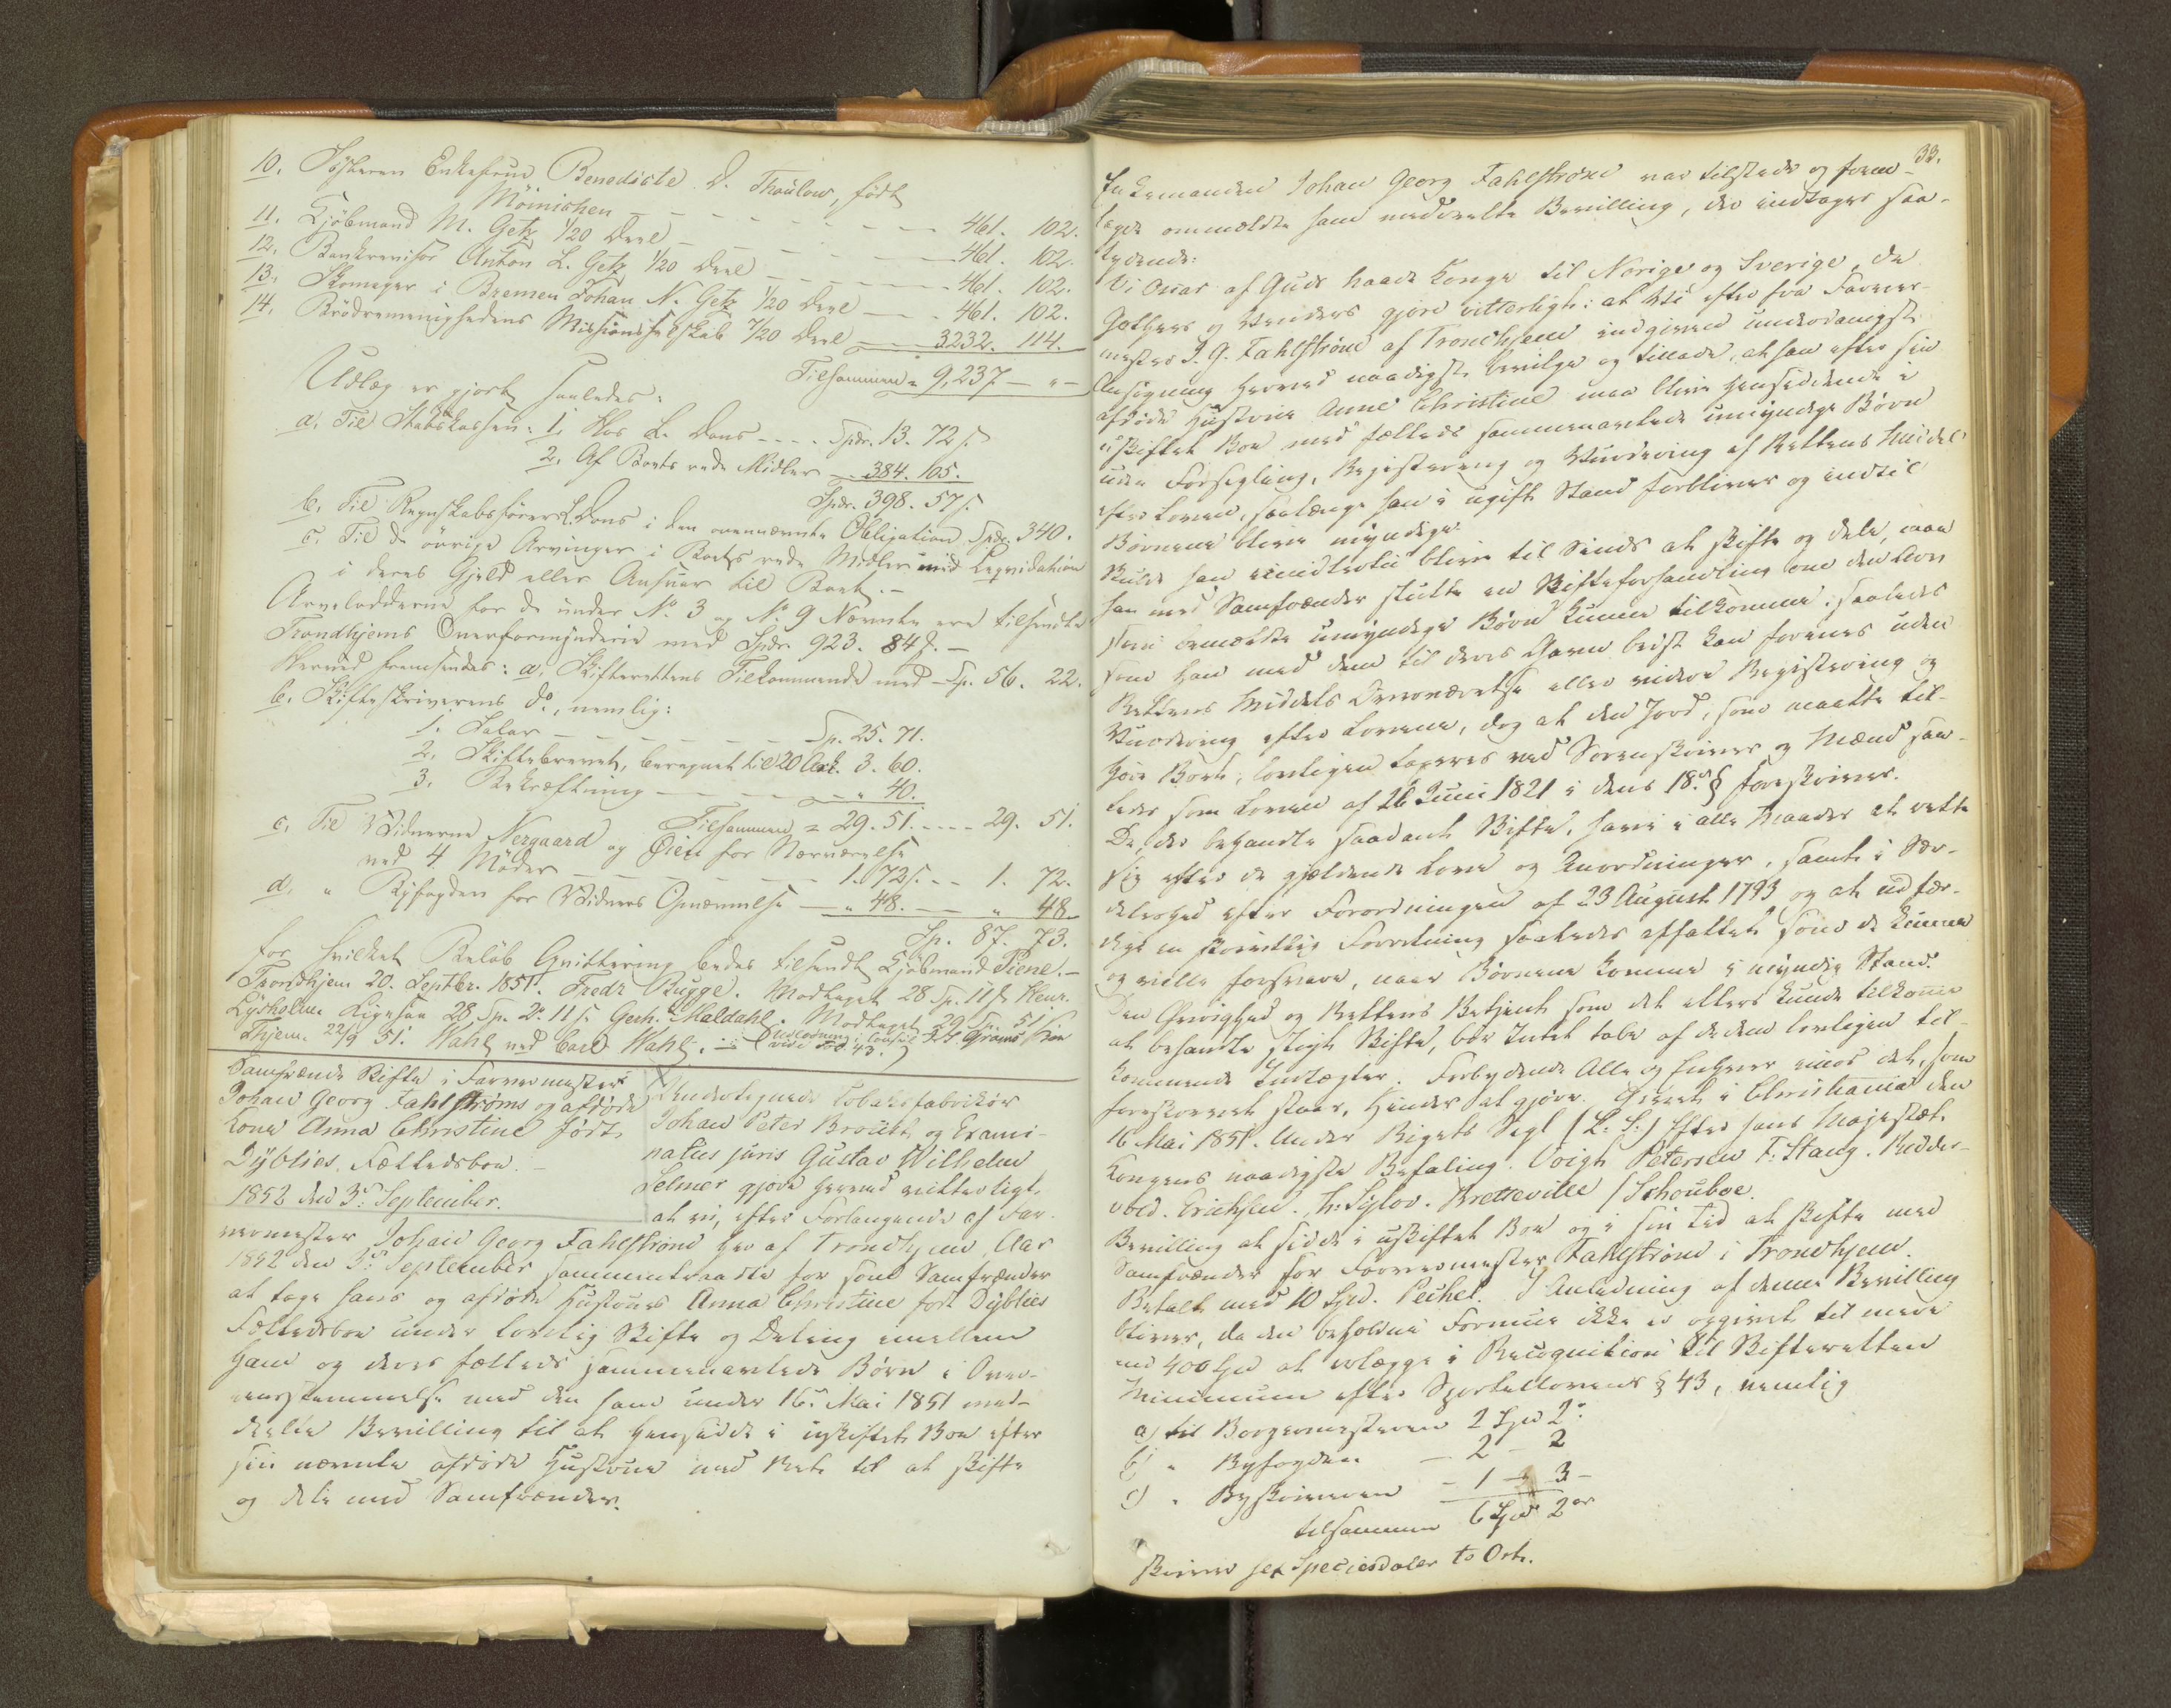 10. Søsteren Enkefrue Benedicte D. Thaulow, født
Møinichen - - - - - - - 461. 102.
11. Kjøbmand M. Getz 1/20 Deel - - - - - - 461. 102.
12. Bankrevisor Anton L. Getz 1/20 Deel - - - - 461. 102.
13. Skomager i Bremen Johan N. Getz 1/20 Deel - - 461. 102.
14. Brødremenighedens Missionsselskab 7/20 Deel - 3232. 114.
Tilsammen = 9,237 - " -
Udlæg er gjort saaledes:
a. Til Stabskassen: 1, Hos L. Dons - - - . Spdr. 13. 72 s.
2. Af Boets rede Midler - - 384. 105.
Spdr. 398. 57 s.
b. Til Regnskabsfører L. Dons i den ovennævnte Obligation Spdr. 340.
c. Til de øvrige Arvinger i Boets rede Midler med Liqvidation
i deres Gjeld eller Ansvar til Boet. -
Arvelodderne for de under No 3 og No 9 Nævnte ere tilsendte
Trondhjems Overformynderie med Spdr. 923. 84 s. -
Herved fremsendes: a, Skifterettens Tilkommende med - Sp. 56. 22.
b. Skifteskriverens do, nemlig:
1. Salar - - - - - - - Sp. 25. 71.
2. Skiftebrevet, beregnet til 20 Ark. 3. 60.
3. Bekræftning - - - - - " 40.
Tilsammen = 29. 51. - - - - 29. 51.
c. Til Vidnerne Nergaard og Øien for Nærværelse
ved 4 Møder - - - - - - - 1. 72 s. - - 1. 72.
d. " Byfogden for Vidners Opnævnelse - " 48. - - " 48
Sp. 87. 73.
for hvilket Beløb Qvittering bedes tilsendt Kjøbmand Piene. -
Trondhjem 20. Septbr. 1851. Fredr Bugge. Modtaget 28 Sp. 11 s. Henr.
Lysholm. Ligesaa 28 Sp. 11 s. Gerh. Maldahl. Modtaget 29 Sp. 51
Thjem. 22/9 51. Wahl ved Carl Wahl.
Samfrænde Skifte i Farvermester
Johan Georg Fahlstrøms og afdøde
Kone Anna Christine født
Dyblies Fælledsboe. -
1852 den 3de September.
Undertegnede Tobaksfabrikør
Johan Peter Broütt, og Exami-
natus juris Gustav Wilhelm
Selmer gjøre herved vitterligt,
at vi, efter Forlangende af Far-
vermester Johan Georg Fahlstrøm her af Trondhjem, Aar
1852 den 3de September sammentraadte for som Samfrænder
at tage hans og afdøde Hustrues Anna Christine født Dyblies
Fælledsboe under lovlig Skifte og Deling imellem
ham og deres fælleds sammenavlede Børn i Over-
eensstemmelse med den ham under 16de Mai 1851 med-
deelte Bevilling til at hensidde i uskiftet Boe efter
sin nævnte afdøde Hustrue med Ret til at skifte
og dele med Samfrænder.
33.
Enkemanden Johan Georg Fahlstrøm var tilstede og frem-
lagde ommeldte ham meddeelte Bevilling, der indtages saa-
lydende:
Vi Oscar af Guds Naade Konge til Norige og Sverige, de
Gothers og Venders gjøre vitterligt: at Vi efter fra Farver-
mester J. G. Fahlstrøm af Trondhjem indgiven underdanigst
Ansøgning herved naadigst bevilge og tillade, at han efter sin
afdøde Hustrue Anne Christine maa blive hensiddende i
uskiftet Boe med fælleds sammenavlede umyndige Børn
uden Forsegling, Registrering og Vurdering af Rettens Middel
efter Loven, saalænge han i ugift Stand forbliver og indtil
Børnene blive myndige.
Skulde han imidlertid blive til Sinds at skifte og dele, maa
han med Samfrænder slutte en Skifteforhandling om den Arv
som bemeldte umyndige Børn kunne tilkomme; saaledes
som han med dem til deres Gavn bedst kan forenes uden
Rettens Middels Nærværelse eller videre Registrering og
Vurdering efter Lovene, dog at den Jord, som maatte til-
høre Boet, lovligen taxeres ved Sorenskriver og Mænd saa-
ledes som Loven af 26 Juni 1821 i dens 18de § foreskriver.
De, der behandle saadant Skifte, have i alle Maader at rette
sig efter de gjældende Love og Anordninger, samt i Sær-
deleshed efter Forordningen af 23 August 1793 og at udfær-
dige en skriftlig Forretning saaledes affattet som de kunne
og ville forsvare, naar Børnene komme i myndig Stand.
Den Øvrighed og Rettens Betjent som det ellers kunde tilkomme
at behandle sligt Skifte, bør Intet tabe af de dem lovligen til-
kommende Indtægter. Forbydende Alle og Enhver imod det, som
foreskrevet staar, Hinder at gjøre. Givet i Christiania den
16 Mai 1851. Under Rigets Segl (L. S.) Efter Hans Majestæt
Kongens naadigste Befaling. Voigt Petersen F. Stang. Ridder-
vold. Erichsen. Th: Sylow. Bretteville / Schouboe.
Bevilling at sidde i uskiftet Boe og i sin Tid at skifte med
Samfrænder for Farvermester Fahlstrøm i Trondhjem.
Betalt med 10 Spd. Pechel. I Anledning af denne Bevilling
bliver, da den beholdne Formue ikke er opgivet til mere
end 400 Spd at erlægge i Recognition til Skifteretten
Minimum efter Sportellovens § 43, nemlig
a) til Borgermesteren 2 Spd 2 "
b) " Byfogden - 2 - 2
c) " Byskriveren - 1 - 3 -
tilsammen 6 Spd 2 or
skriver sex Speciesdaler to Ort.